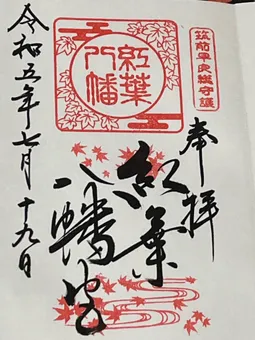 筑前早良鎮守護
奉拝
紅葉
八幡
紅葉
八幡宮
令和五年七月十九日